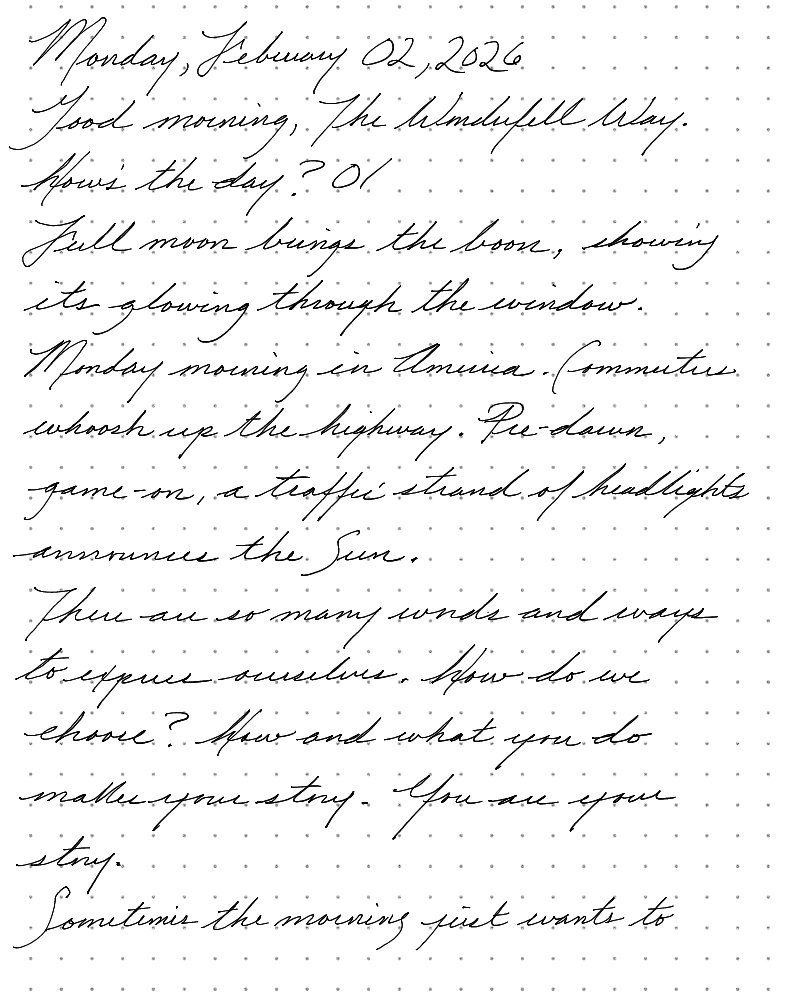 Monday, February 02, 2026
Good morning, The Wonderfell Way.
How's the day? 01
Full moon brings the boon, showing
its glowing through the window.
Monday morning in America. Commuters
whoosh up the highway. Pre-dawn,
game-on, a traffic strand of headlights
announces the Sun.
There are so many words and ways
to express ourselves. How do we
choose? How and what you do
makes your story. You are your
story.
Sometimes the morning just wants to